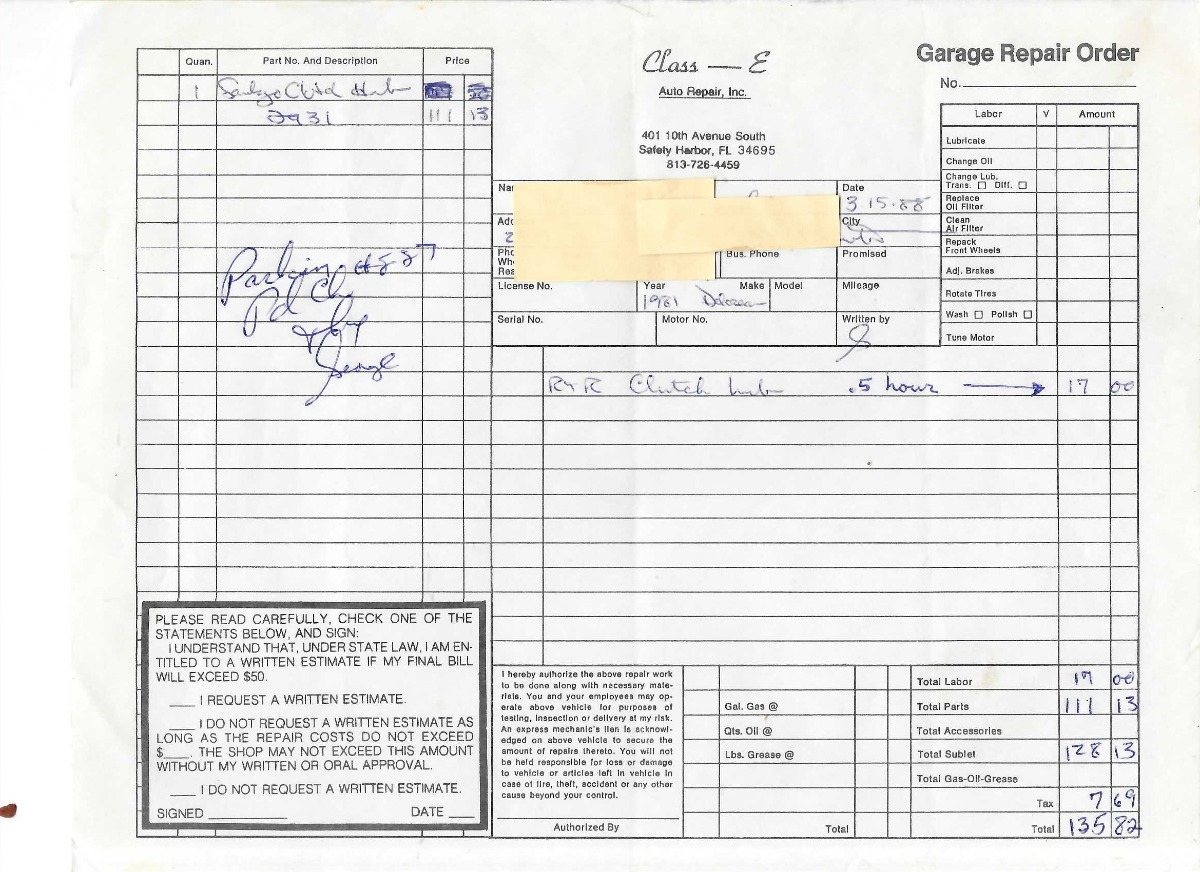 Quan. Part No. And Description Price
1 Sankyo Clutch Hub
2931 111 13
Class — E
Auto Repair, Inc.
401 10th Avenue South
Safety Harbor, FL 34695
813-726-4459
Garage Repair Order
No.
Labor V Amount
Lubricate
Change Oil
Change Lub.
Trans. Diff.
Replace
Oil Filter
Clean
Air Filter
Repack
Front Wheels
Adj. Brakes
Rotate Tires
Wash Polish
Tune Motor
Date
3 15-88
City
Bus. Phone Promised
License No. Year Make Model Mileage
1981 Delorean
Serial No. Motor No. Written by
Pd Ck
George
R+R Clutch hub .5 hour 17 00
PLEASE READ CAREFULLY, CHECK ONE OF THE
STATEMENTS BELOW, AND SIGN:
I UNDERSTAND THAT, UNDER STATE LAW, I AM EN-
TITLED TO A WRITTEN ESTIMATE IF MY FINAL BILL
WILL EXCEED $50.
___ I REQUEST A WRITTEN ESTIMATE.
___ I DO NOT REQUEST A WRITTEN ESTIMATE AS
LONG AS THE REPAIR COSTS DO NOT EXCEED
$___. THE SHOP MAY NOT EXCEED THIS AMOUNT
WITHOUT MY WRITTEN OR ORAL APPROVAL.
___ I DO NOT REQUEST A WRITTEN ESTIMATE.
SIGNED ___ DATE ___
I hereby authorize the above repair work
to be done along with necessary mate-
rials. You and your employees may op-
erate above vehicle for purposes of
testing, inspection or delivery at my risk.
An express mechanic's lien is acknowl-
edged on above vehicle to secure the
amount of repairs thereto. You will not
be held responsible for loss or damage
to vehicle or articles left in vehicle in
case of fire, theft, accident or any other
cause beyond your control.
Authorized By
Gal. Gas @
Qts. Oil @
Lbs. Grease @
Total
Total Labor 17 00
Total Parts 111 13
Total Accessories
Total Sublet 128 13
Total Gas-Oil-Grease
Tax 7 69
Total 135 82